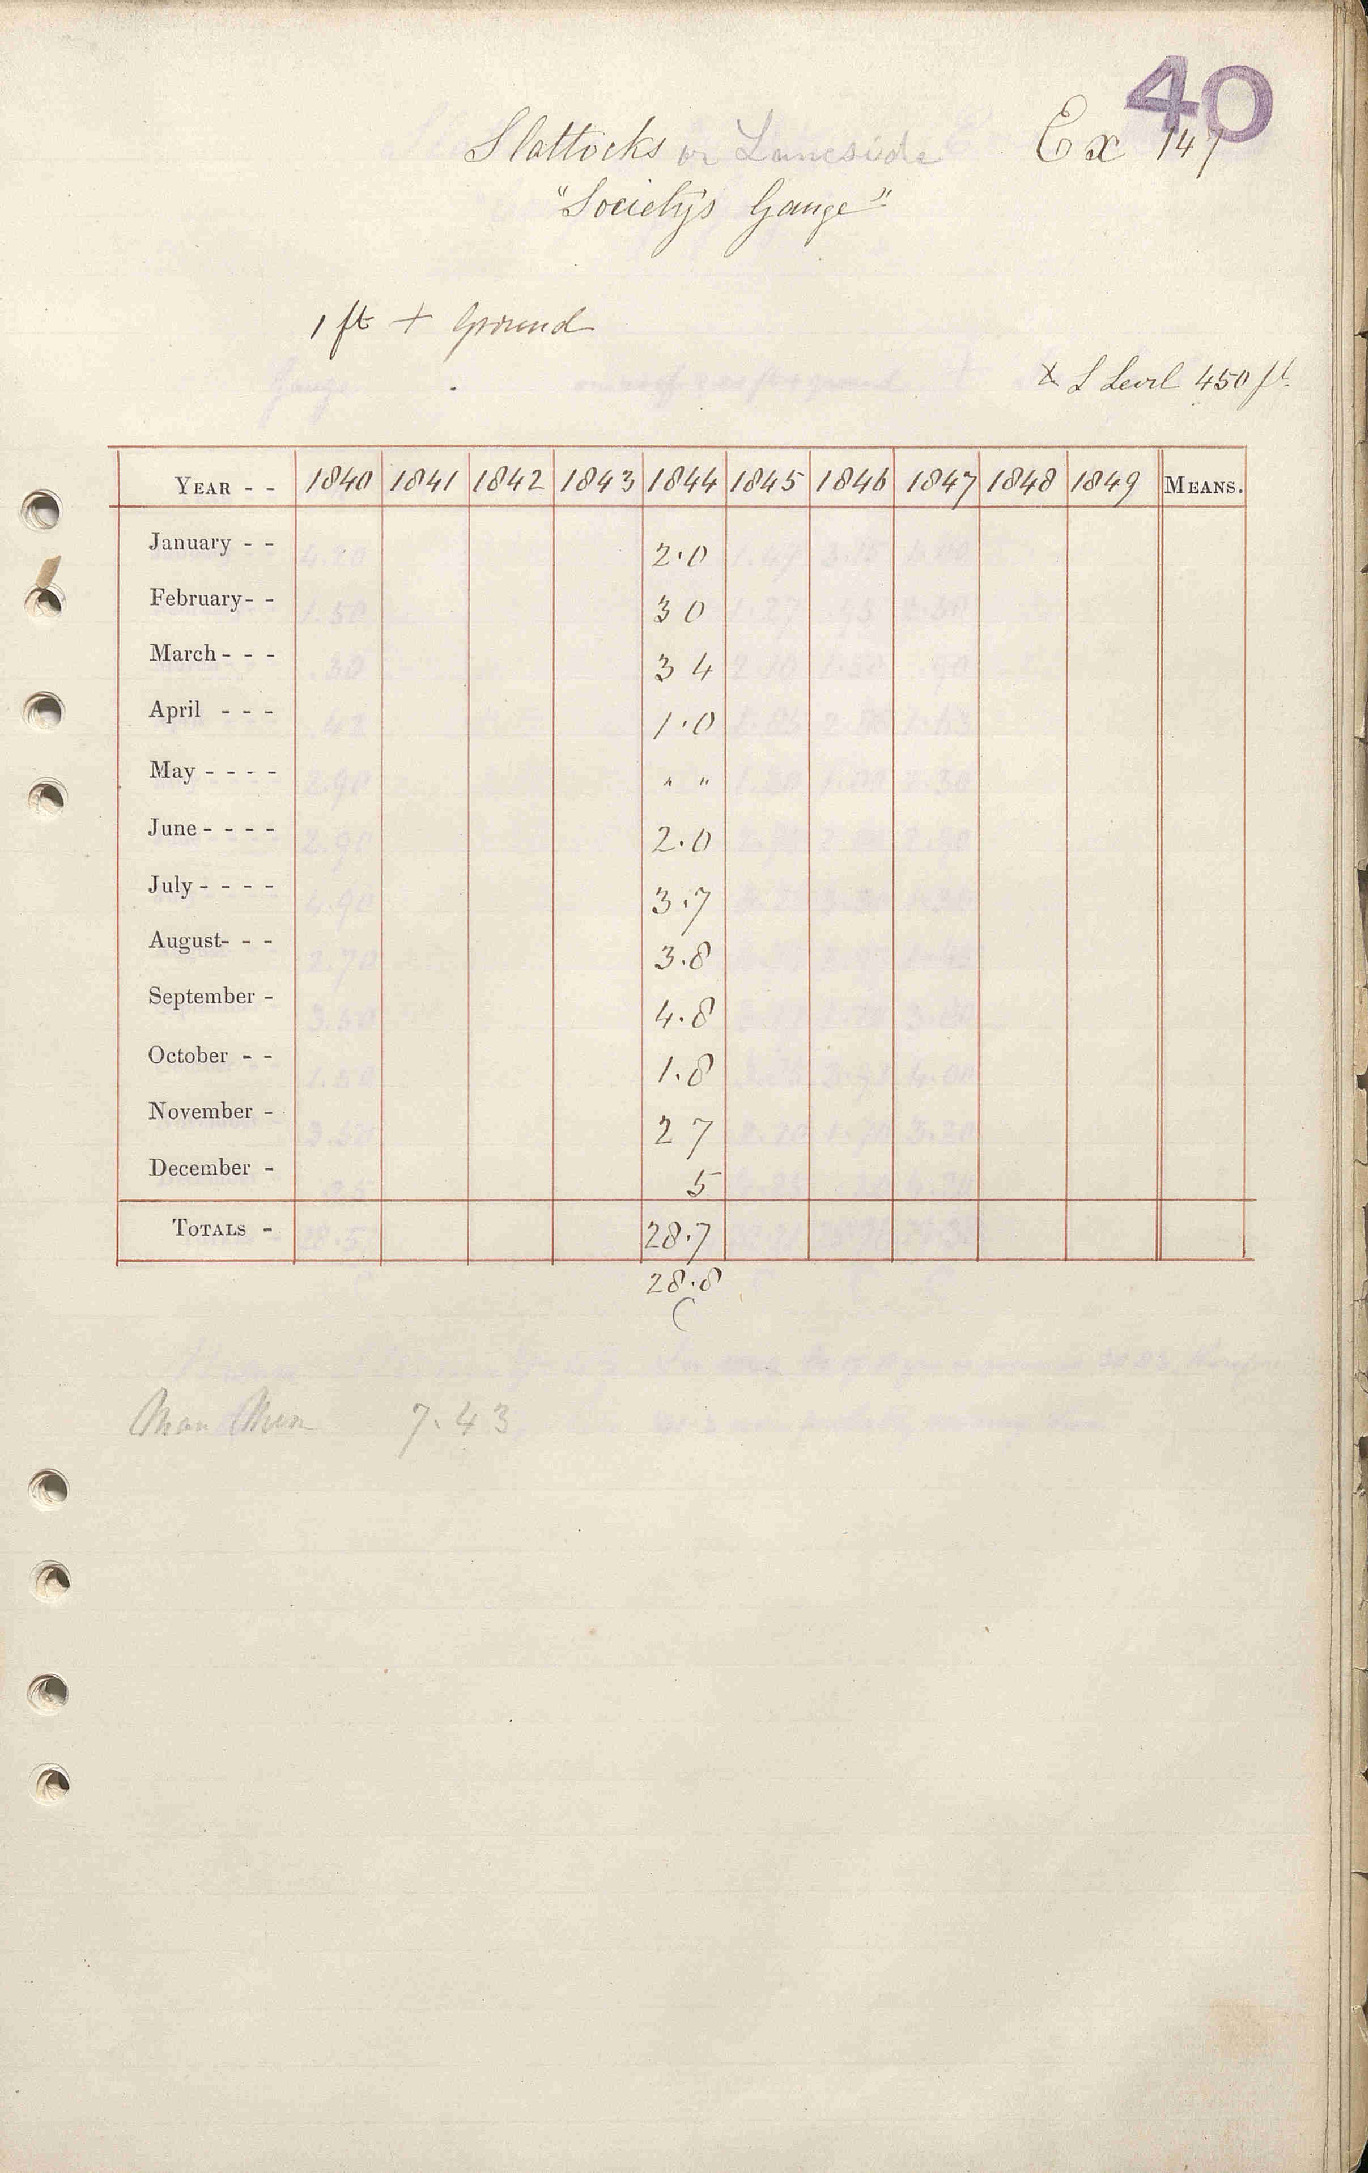 40
Slattocks or Laneside Ex 147
"Society's Gauge"
1 ft + Ground
S Level 450 ft.
YEAR - - 1840 1841 1842 1843 1844 1845 1846 1847 1848 1849 MEANS.
January - - 2.0
February - - 3 0
March - - - 3 4
April - - - 1.0
May - - - - " "
June - - - - 2.0
July - - - - 3.7
August - - - 3.8
September - 4.8
October - - 1.8
November - 2 7
December - 5
TOTALS - 28.7
28.8
C
7.43